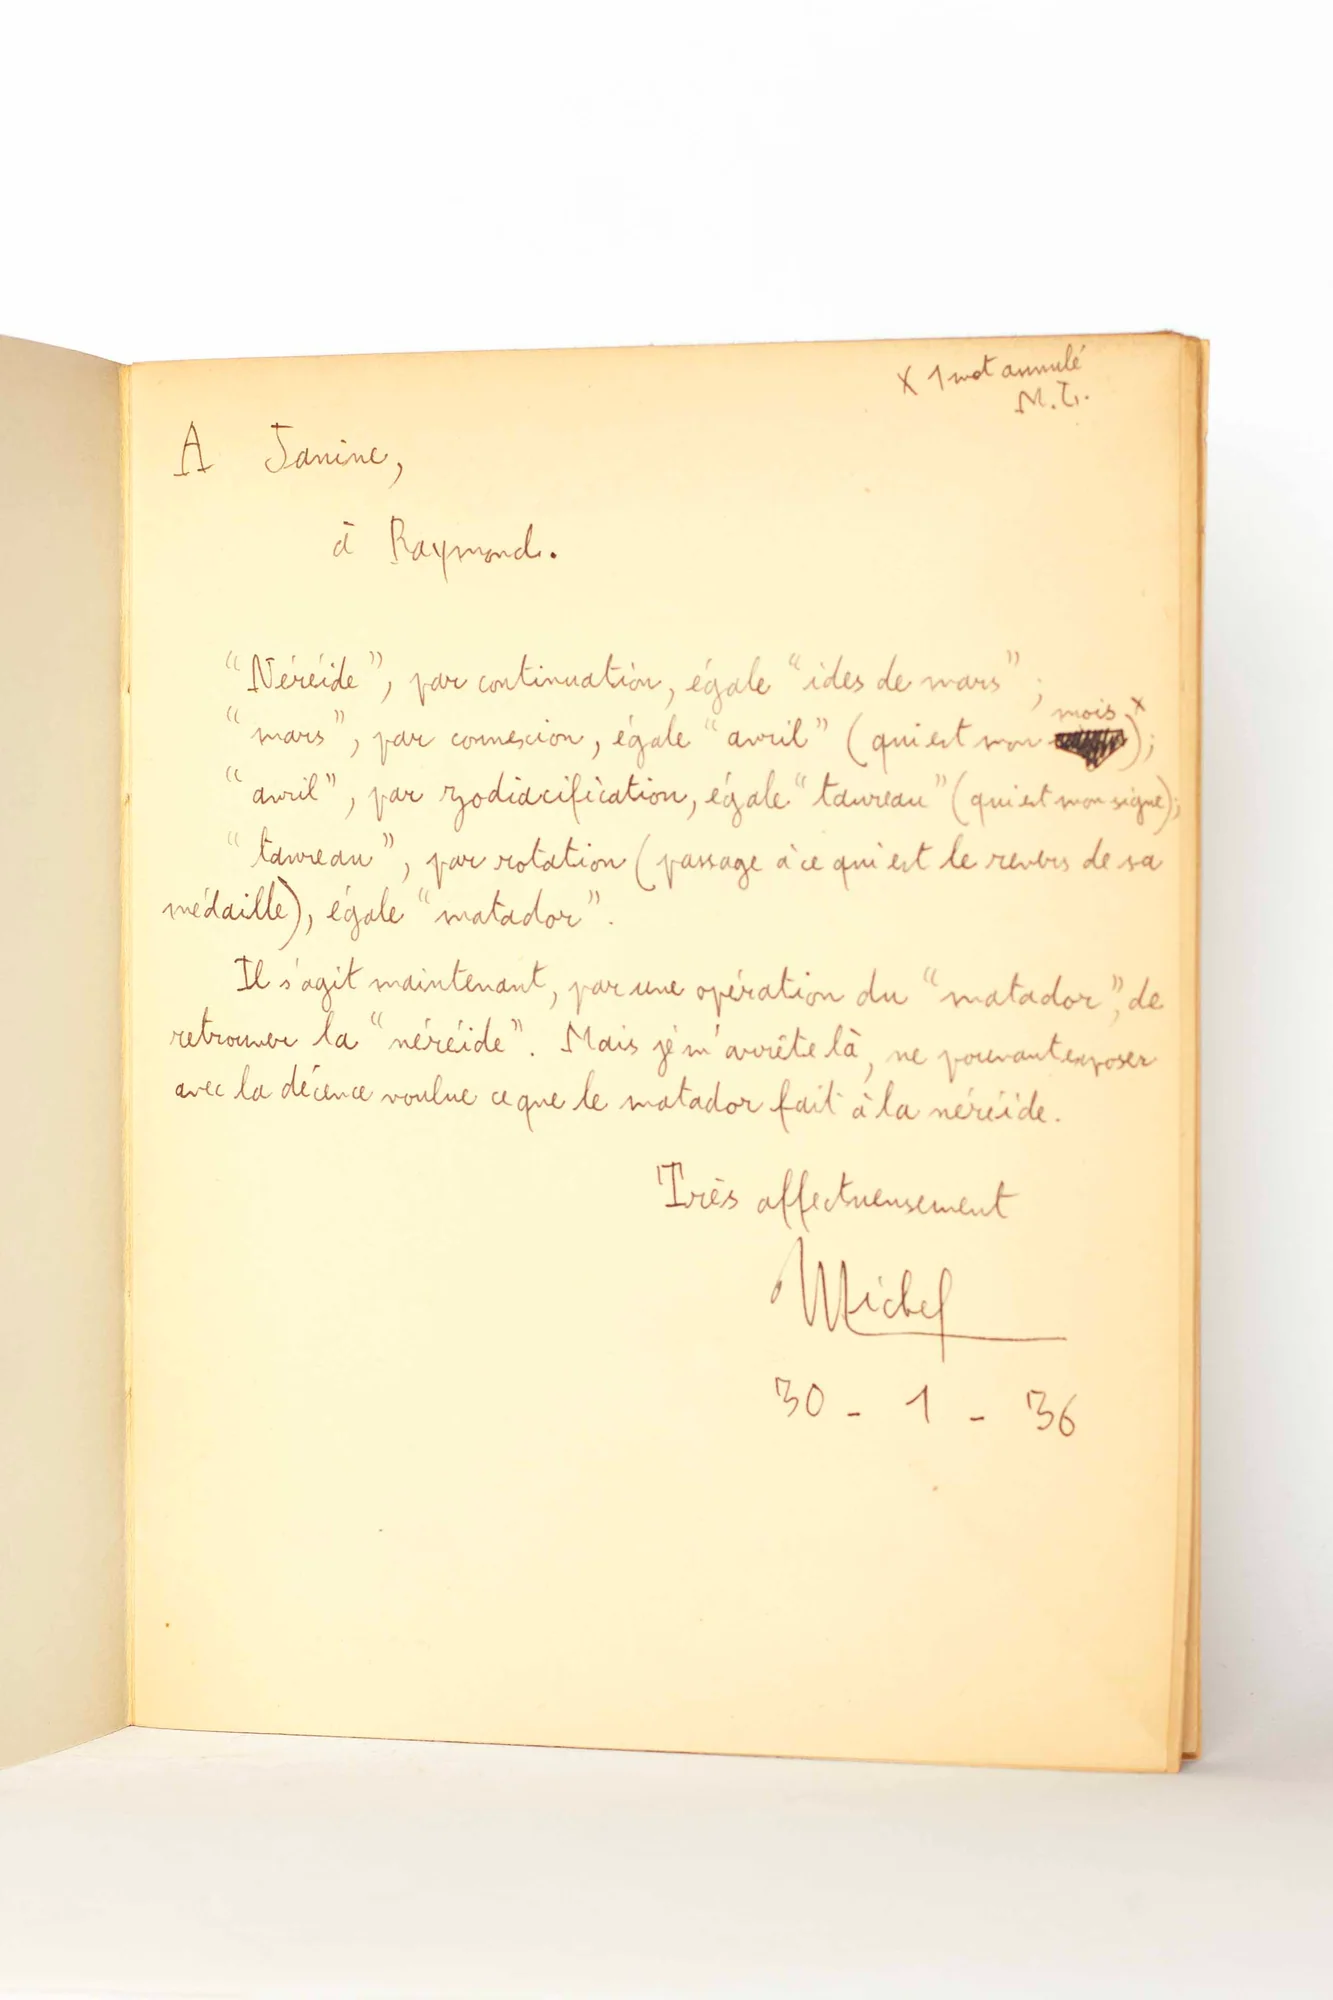 x 1 mot annulé
M. L.
A Janine,
à Raymond.
“Néréide”, par continuation, égale “ides de mars” ;
“mars”, par connexion, égale “avril” (qui est mon mois x);
“avril”, par zodiacification, égale “taureau” (qui est mon signe);
“taureau”, par rotation (passage à ce qui est le revers de sa
médaille), égale “matador”.
Il s'agit maintenant, par une opération du “matador”, de
retrouver la “néréide”. Mais je m'arrête là, ne pouvant exposer
avec la décence voulue ce que le matador fait à la néréide.
Très affectueusement
Michel
30 - 1 - 36